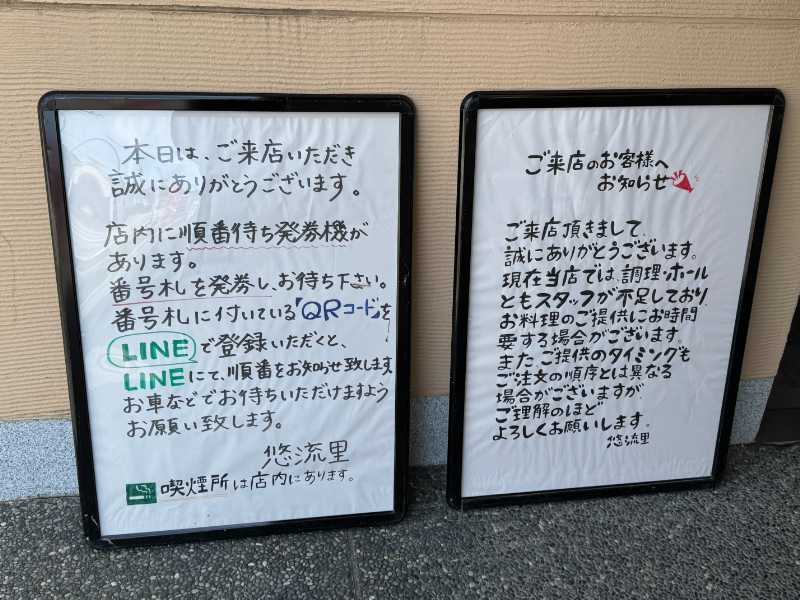 本日は、ご来店いただき
誠にありがとうございます。
店内に順番待ち発券機が
あります。
番号札を発券し、お待ち下さい。
番号札に付いている「QRコード」を
LINEで登録いただくと、
LINEにて、順番をお知らせ致します
お車などでお待ちいただけますよう
お願い致します。
悠流里
喫煙所は店内にあります。
ご来店のお客様へ
お知らせ
ご来店頂きまして、
誠にありがとうございます。
現在当店では、調理・ホール
ともスタッフが不足しており、
お料理のご提供にお時間
要する場合がございます。
またご提供のタイミングも
ご注文の順序とは異なる
場合がございますが、
ご理解のほど
よろしくお願いします。
悠流里